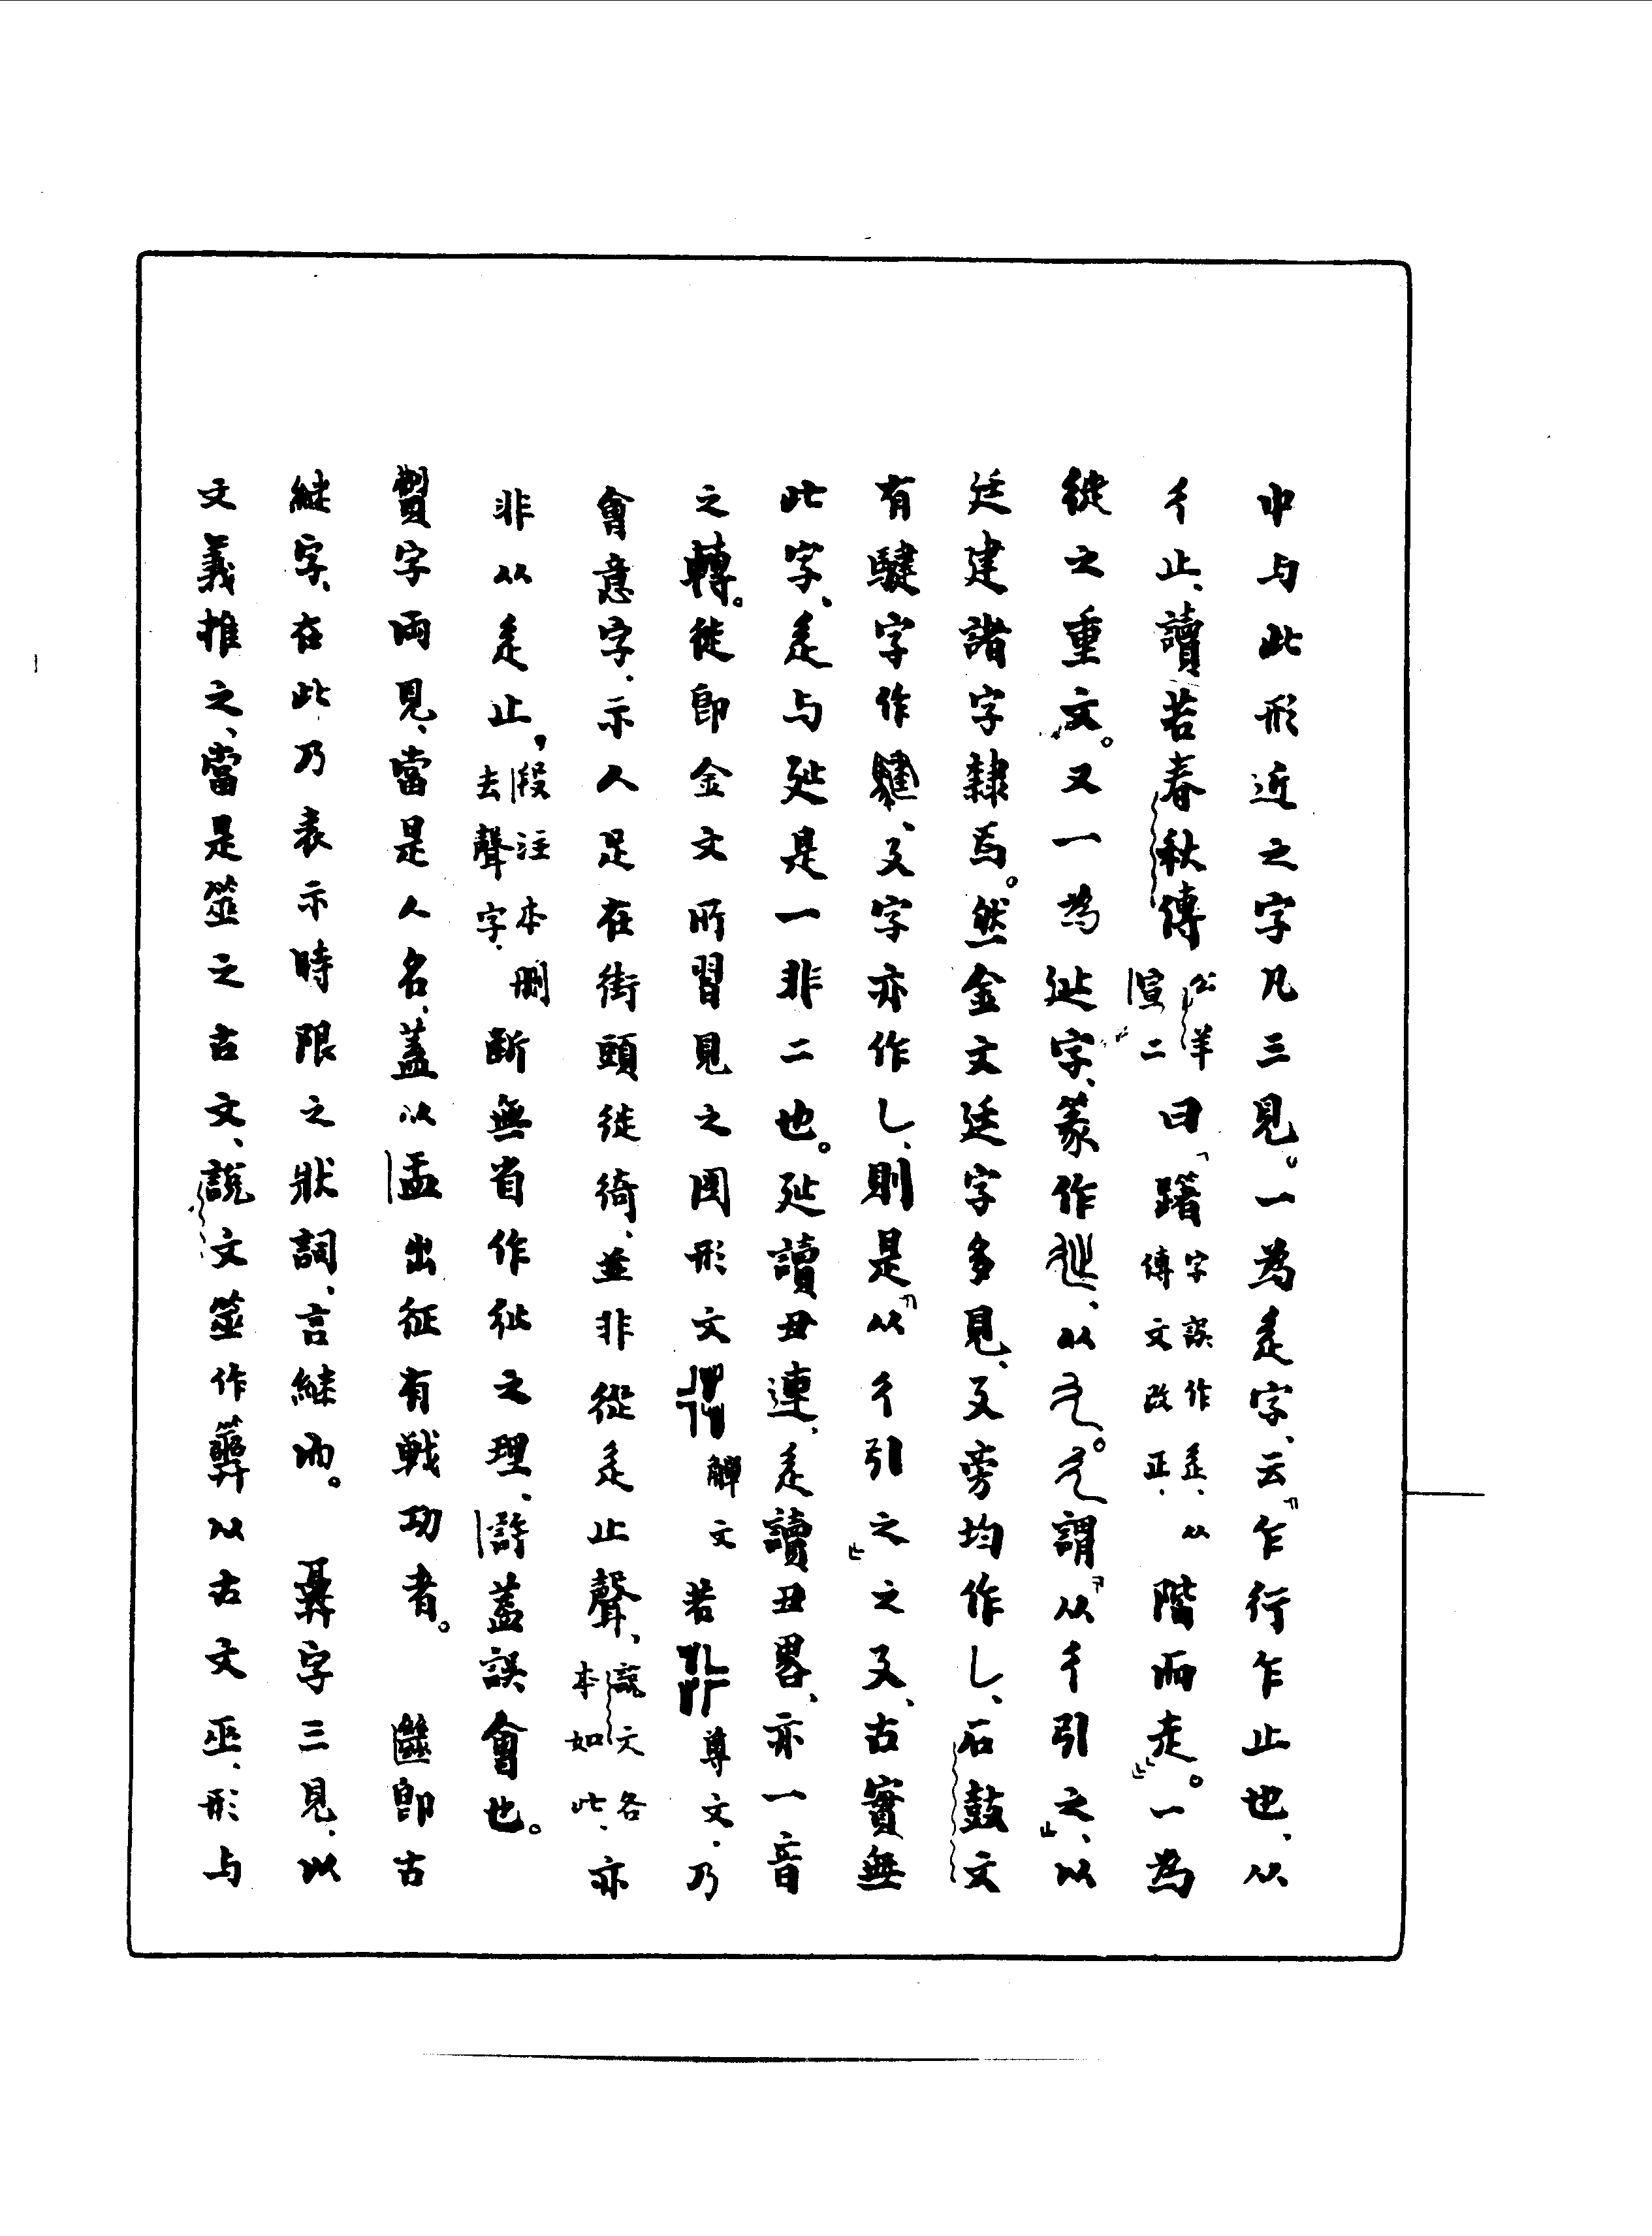 中与此形近之字凡三見。一為辵字、云『乍行乍止也、从
彳止、讀若春秋傳公羊宣二曰『躇字誤作辵、从傳文改正、階而走』』。一為
徙之重文。又一為延字、篆作、从廴。廴謂『从彳引之』、以
廷建諸字隸焉。然金文廷字多見、廴旁均作乚、石鼓文
有騝字作、廴字亦作乚、則是『从彳引之』之廴、古實無
此字、辵与延是一非二也。延讀丑連、辵讀丑畧、亦一音
之轉。徙即金文所習見之圖形文觶文若尊文、乃
會意字、示人足在街頭徙徛、並非從辵止聲、說文各本如此、亦
非从辵止，段注本刪去聲字、斷無省作㢟之理、許蓋誤會也。
字兩見、當是人名、蓋以孟出征有戰功者。即古
継字、在此乃表示時限之狀詞、言継而。字三見、以
文義推之、當是筮之古文、說文筮作𥷚以古文巫、形与